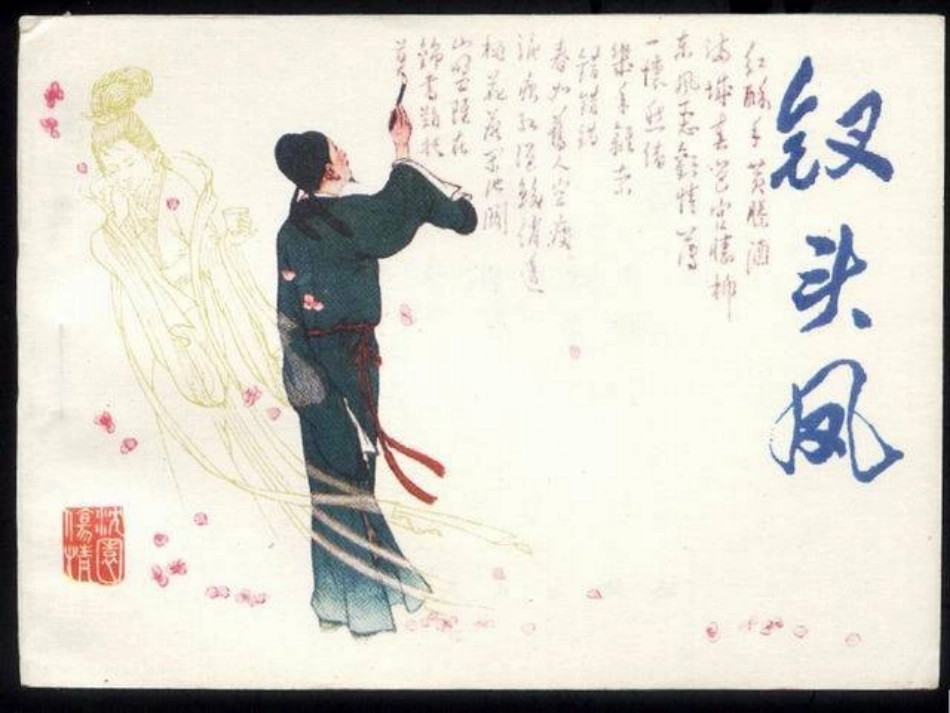 钗头凤
红酥手黄縢酒
满城春色宫墙柳
东风恶欢情薄
一懷愁绪
幾年離索
错错错
春如舊人空瘦
泪痕红浥鲛绡透
桃花落闲池阁
山盟雖在
锦书難托
莫
沈園
傷情